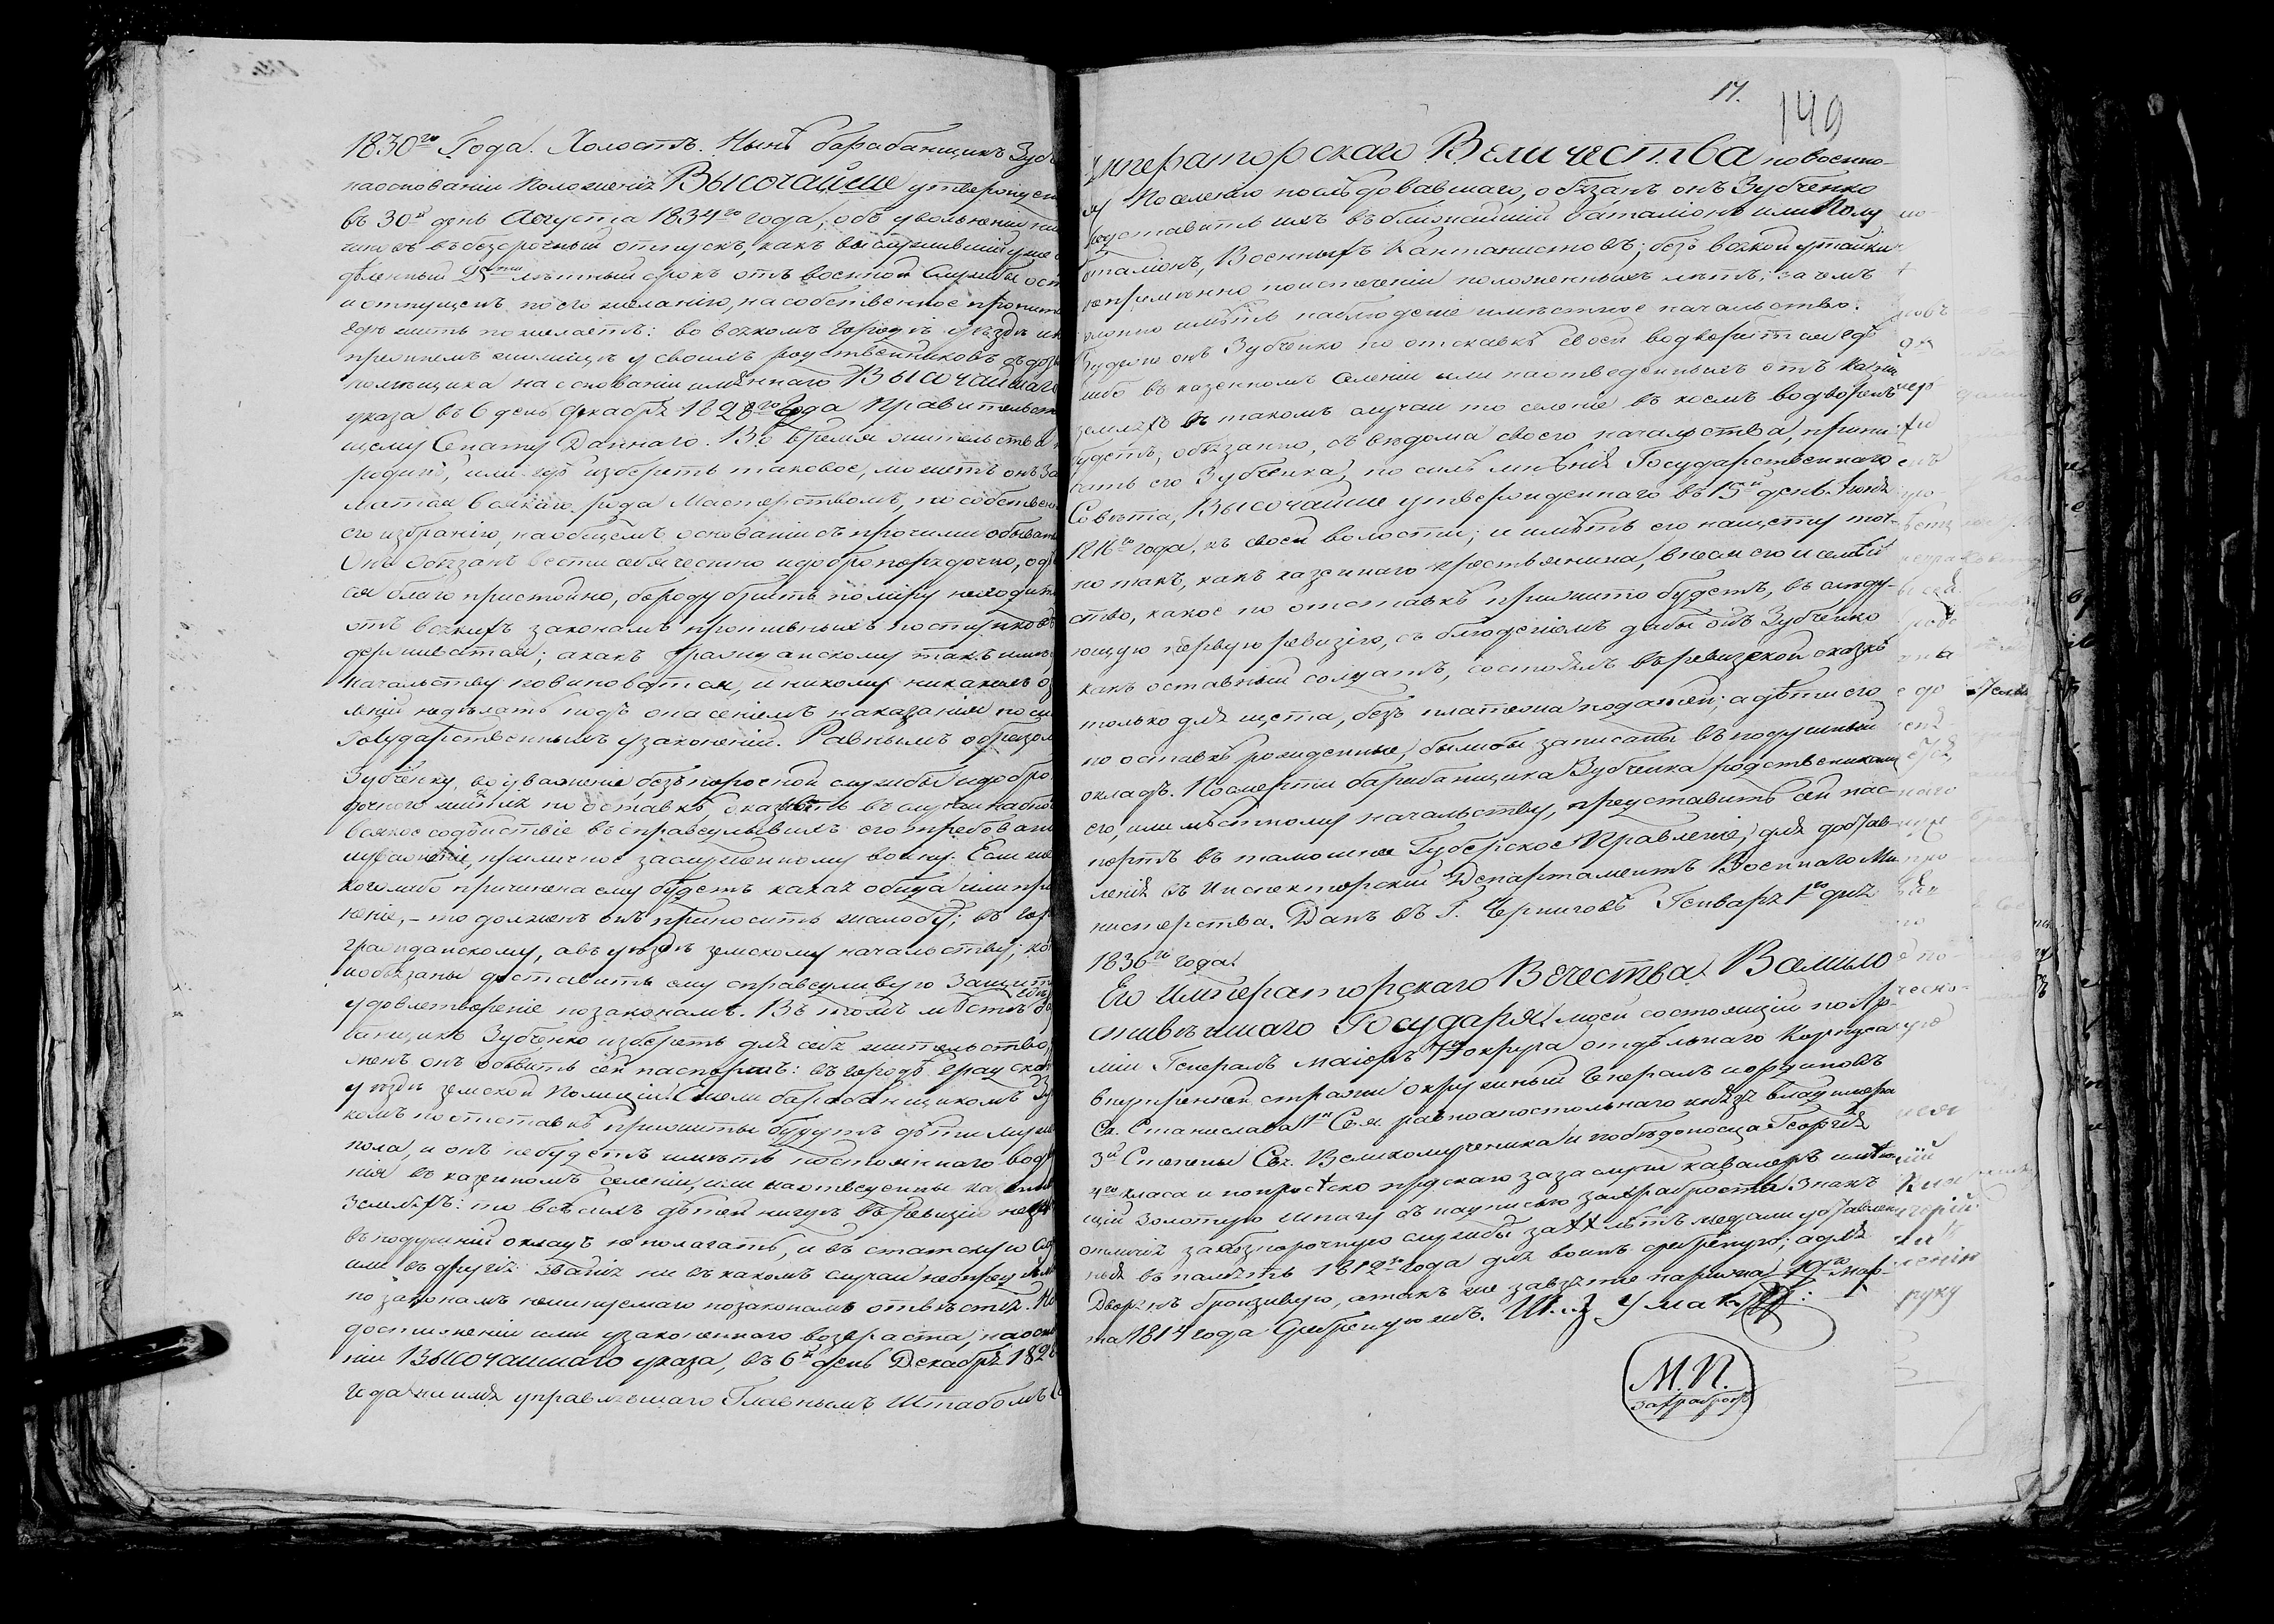 1830го Года. Холостъ. Нынѣ барабанщикъ Зубч
наосновании положенія Высочайше утвержден
въ 30й день Августа 1834го года, объ увольненіи ни
чиновъ въ безсрочный отпускъ, какъ выслужившій уже
дѣленный лѣтный срокъ отъ военной службы
и отпущенъ по его желанію, на собственное пропит
гдѣ жить пожелаетъ: во всякомъ городѣ уѣздѣ
прежнемъ жилищѣ у своихъ родственниковъ
помѣщика на основаніи имяннаго Высочайшаго
указа въ 6 день Декабря 1828го Года Правительст
щему Сенату Даннаго. Во время жительства
родинѣ, или гдѣ изберетъ таковое, можетъ онъ За
матся всякаго рода Мастерствомъ, по собствен
его избранію, на общемъ основаніи съ прочими обыват
Онъ Обязанъ вести себя честно и добропорядочно, од
ся благопристойно, бороду брить по міру неходить
отъ всякихъ законамъ противныхъ поступковъ
держиватся; а какъ Гражданскому такъ и
начальству повиноватся, и никому никакихъ о
недѣлать подъ опасеніемъ наказанія по
Государственнымъ узаконеній. Равнымъ образом
Зубченку, во уваженіе безъпорочной службы и добро
дочнаго житія по отставкѣ, оказывать въ случаи надоб
всякое содѣйствіе въ справедливыхъ его требовані
и уваженіе, приличное заслуженному воину. Если же
кого либо причинена ему будетъ какая обида или при
неніе, – то долженъ онъ приносить жалобу; въ гор
гражданскому, а въ уѣздѣ земскому начальству; ко
и обязаны доставить ему справедливую Защит
удовлетвореніе по законамъ. Въ томъ мѣстѣ гдѣ
банщикъ Зубченко изберетъ для себя жительство,
женъ онъ объявить сей паспортъ: въ городѣ Градской
уѣздѣ земской Полиціи. Ежели барабанщикомъ Зу
комъ по отставкѣ прижиты будутъ дѣти муже
пола, и онъ небудетъ имѣть постояннаго вод
нія въ казенномъ селеніи, или наотведенны казен
Земляхъ: то всѣхъ дѣтей нигдѣ въ ревизію
въ подушный окладъ не полагать, и въ статскую
или въ другія званія ни въ какомъ случаи
по законамъ неминуемаго по законамъ отвѣтствія. По
достиженіи ими узаконеннаго возраста, наосно
ніи Высочайшаго указа, въ 6й день Декабря 1828
Года на имя управлявшаго Главнымъ Штабомъ
17.
149
Императорскаго Величества по военно-
му Поселенію послѣдовавшаго, обязанъ онъ Зубченко
представить ихъ въ ближайшій баталіонъ или Полу
баталіонъ, Военныхъ Кантанистовъ; безъ всякой утайки
непремѣнно по истеченіи положенныхъ лѣтъ; за чемъ
должно имѣть наблюденіе и мѣстное начальство.
Будеже онъ Зубченко по отставкѣ своей водворится гдѣ
либо въ казенномъ селеніи или наотведенныхъ отъ казны
земляхъ въ такомъ случаи то селеніе въ коемъ водворенъ
будетъ, обязанно, съ вѣдома своего начальства, припи-
сать его Зубченка, по силѣ мнѣнія Государственнаго
Совѣта, Высочайше утвержденнаго въ 15й день Іюня
1816го года, къ своей волости; и имѣть его на щету точ-
но такъ, какъ казеннаго крестьянина, внеся его и семей
ство, какое по отставкѣ прижито будетъ, въ слѣду-
ющую первую ревизію, съ блюденіемъ дабы онъ Зубченко
какъ оставный солдатъ, состоялъ въ ревизской сказкѣ
только для щета, безъ платежа податей; а дѣти его
по оставкѣ рожденные, были бы записаны въ подушный
окладъ. По смерти барабанщика Зубченка родственикам
его, или мѣстному начальству, представить сей пас-
портъ въ тамошнее Губерское Правленіе, для достав-
ленія въ Инспекторскій Департаментъ Военнаго Ми-
нистерства. Данъ въ Г. Черниговѣ Генваря 1го дня
1836го года.
Его Императорскаго Вечества Всемило
стивѣйшаго Государя моей состоящій по Ар-
міи Генералъ Маіоръ округа отдѣльнаго Корпуса
внутренней стражи окружный Генералъ и орденовъ
Св. Станислава 1й Св.я равноапостольнаго князя Владимера
3й Степены Свя. Великомученика и побѣдоносца Георгія
4го класа и попрусско прдскаго за заслуги кавалеръ имѣю
щій Золотую шпагу съ надписью за храбрость Знакъ
отличія за безпорочную службу за лѣтъ медали уставлен
ныя въ память 1812го года для воинъ сребреную; а для
Дворянъ бронзивую, а такъ же за взятіе парижа 19го мар-
та 1814 года Сребреную жъ.
М.П.